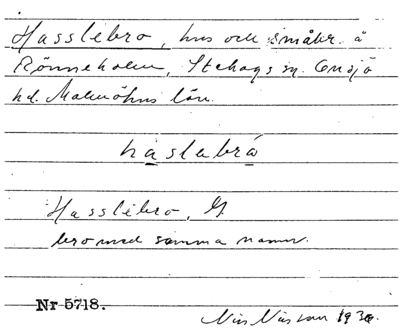 Hasslebro, hus och småbr. å
Rönneholm, Stehags sn. Onsjö
hd. Malmöhus län.
haslebró
Hasslebro, G.
bro med samma namn.
Nr 5718.
Nils Nilsson 193